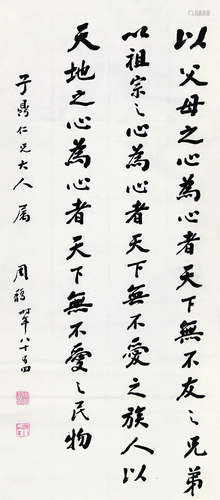 以父母之心為心者天下無不友之兄弟
以祖宗之心為心者天下無不愛之族人以
天地之心為心者天下無不愛之民物
子鼎仁兄大人屬
周 年八十四